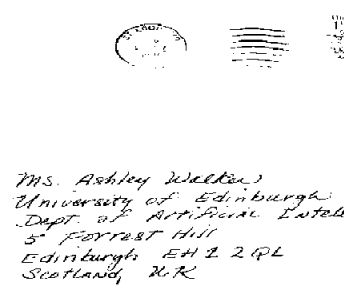 Ms. Ashley Walker,
University of Edinburgh
Dept. of Artificial Intell
5 Forrest Hill
Edinburgh EH1 2QL
Scotland, U.K